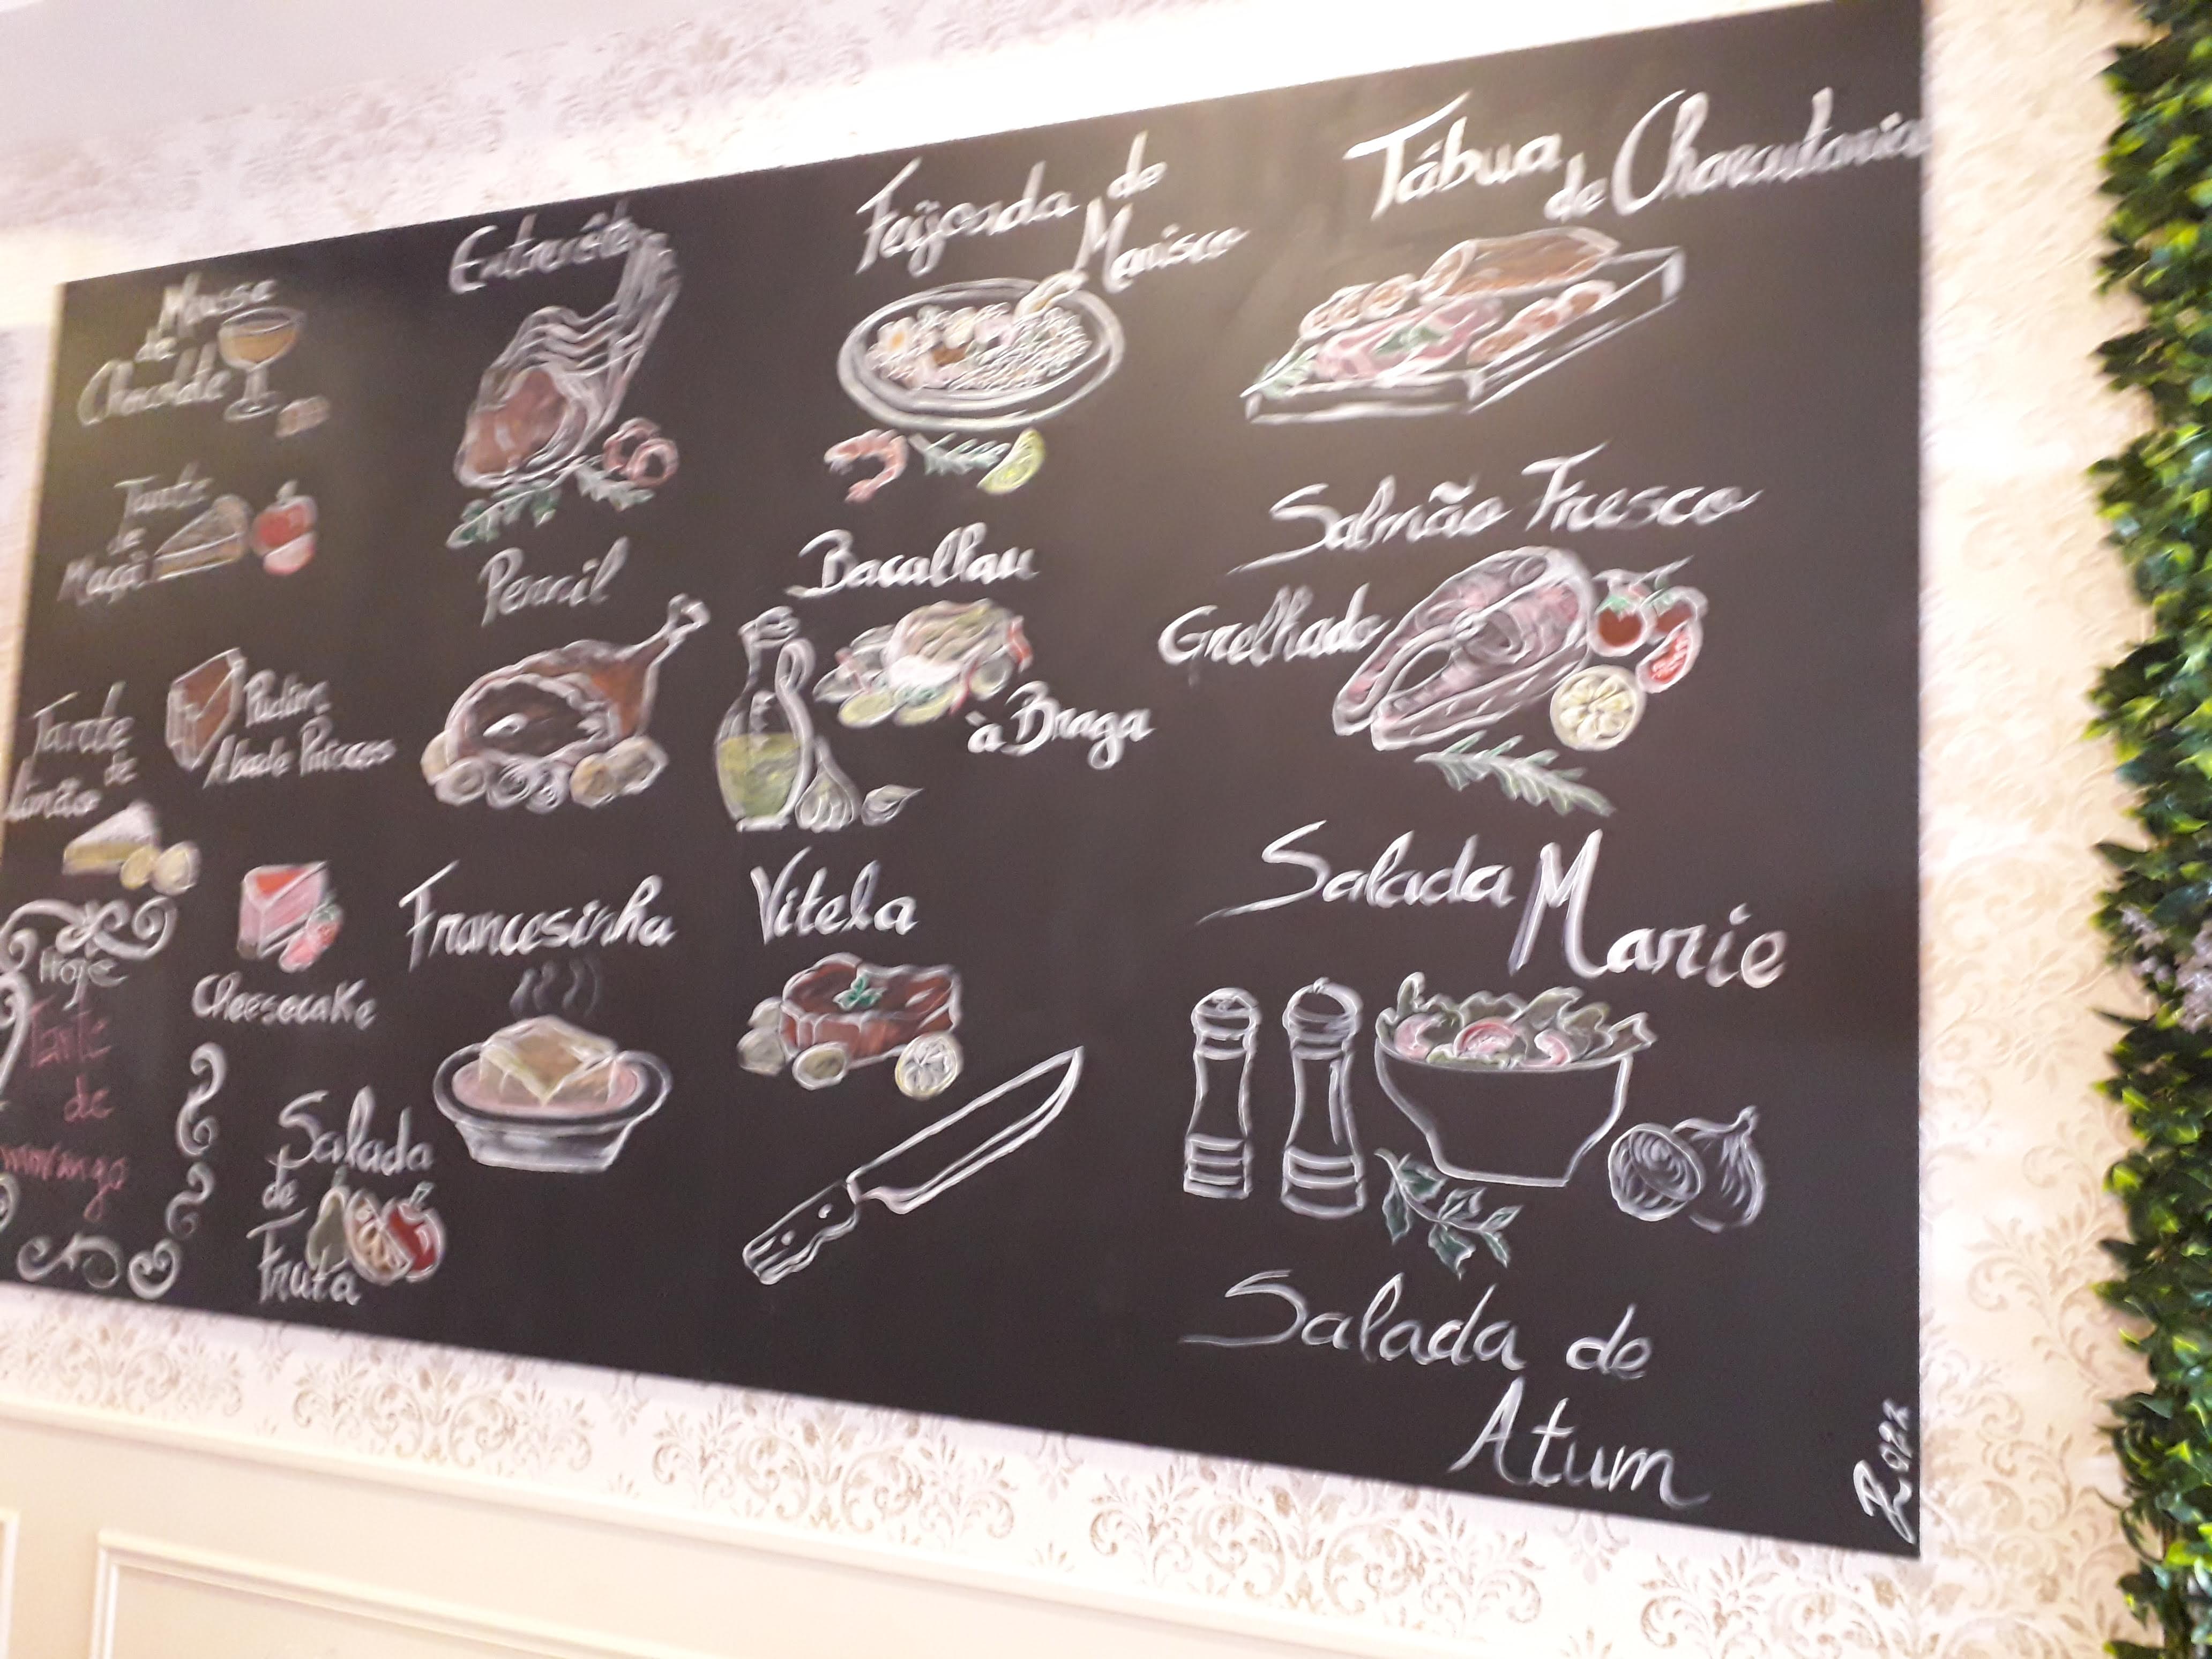 Mousse
de
Chocolate
Tarte
de
Maçã
Tarte
de
Limão
Pudim
Abade Priscos
Cheesecake
Hoje
Tarte
de
morango
Salada
de
Fruta
Entrecôte
Pernil
Francesinha
Feijoada de
Marisco
Bacalhau
à Braga
Vitela
Tábua de
Salmão Fresco
Grelhado
Salada Marie
Salada de
Atum